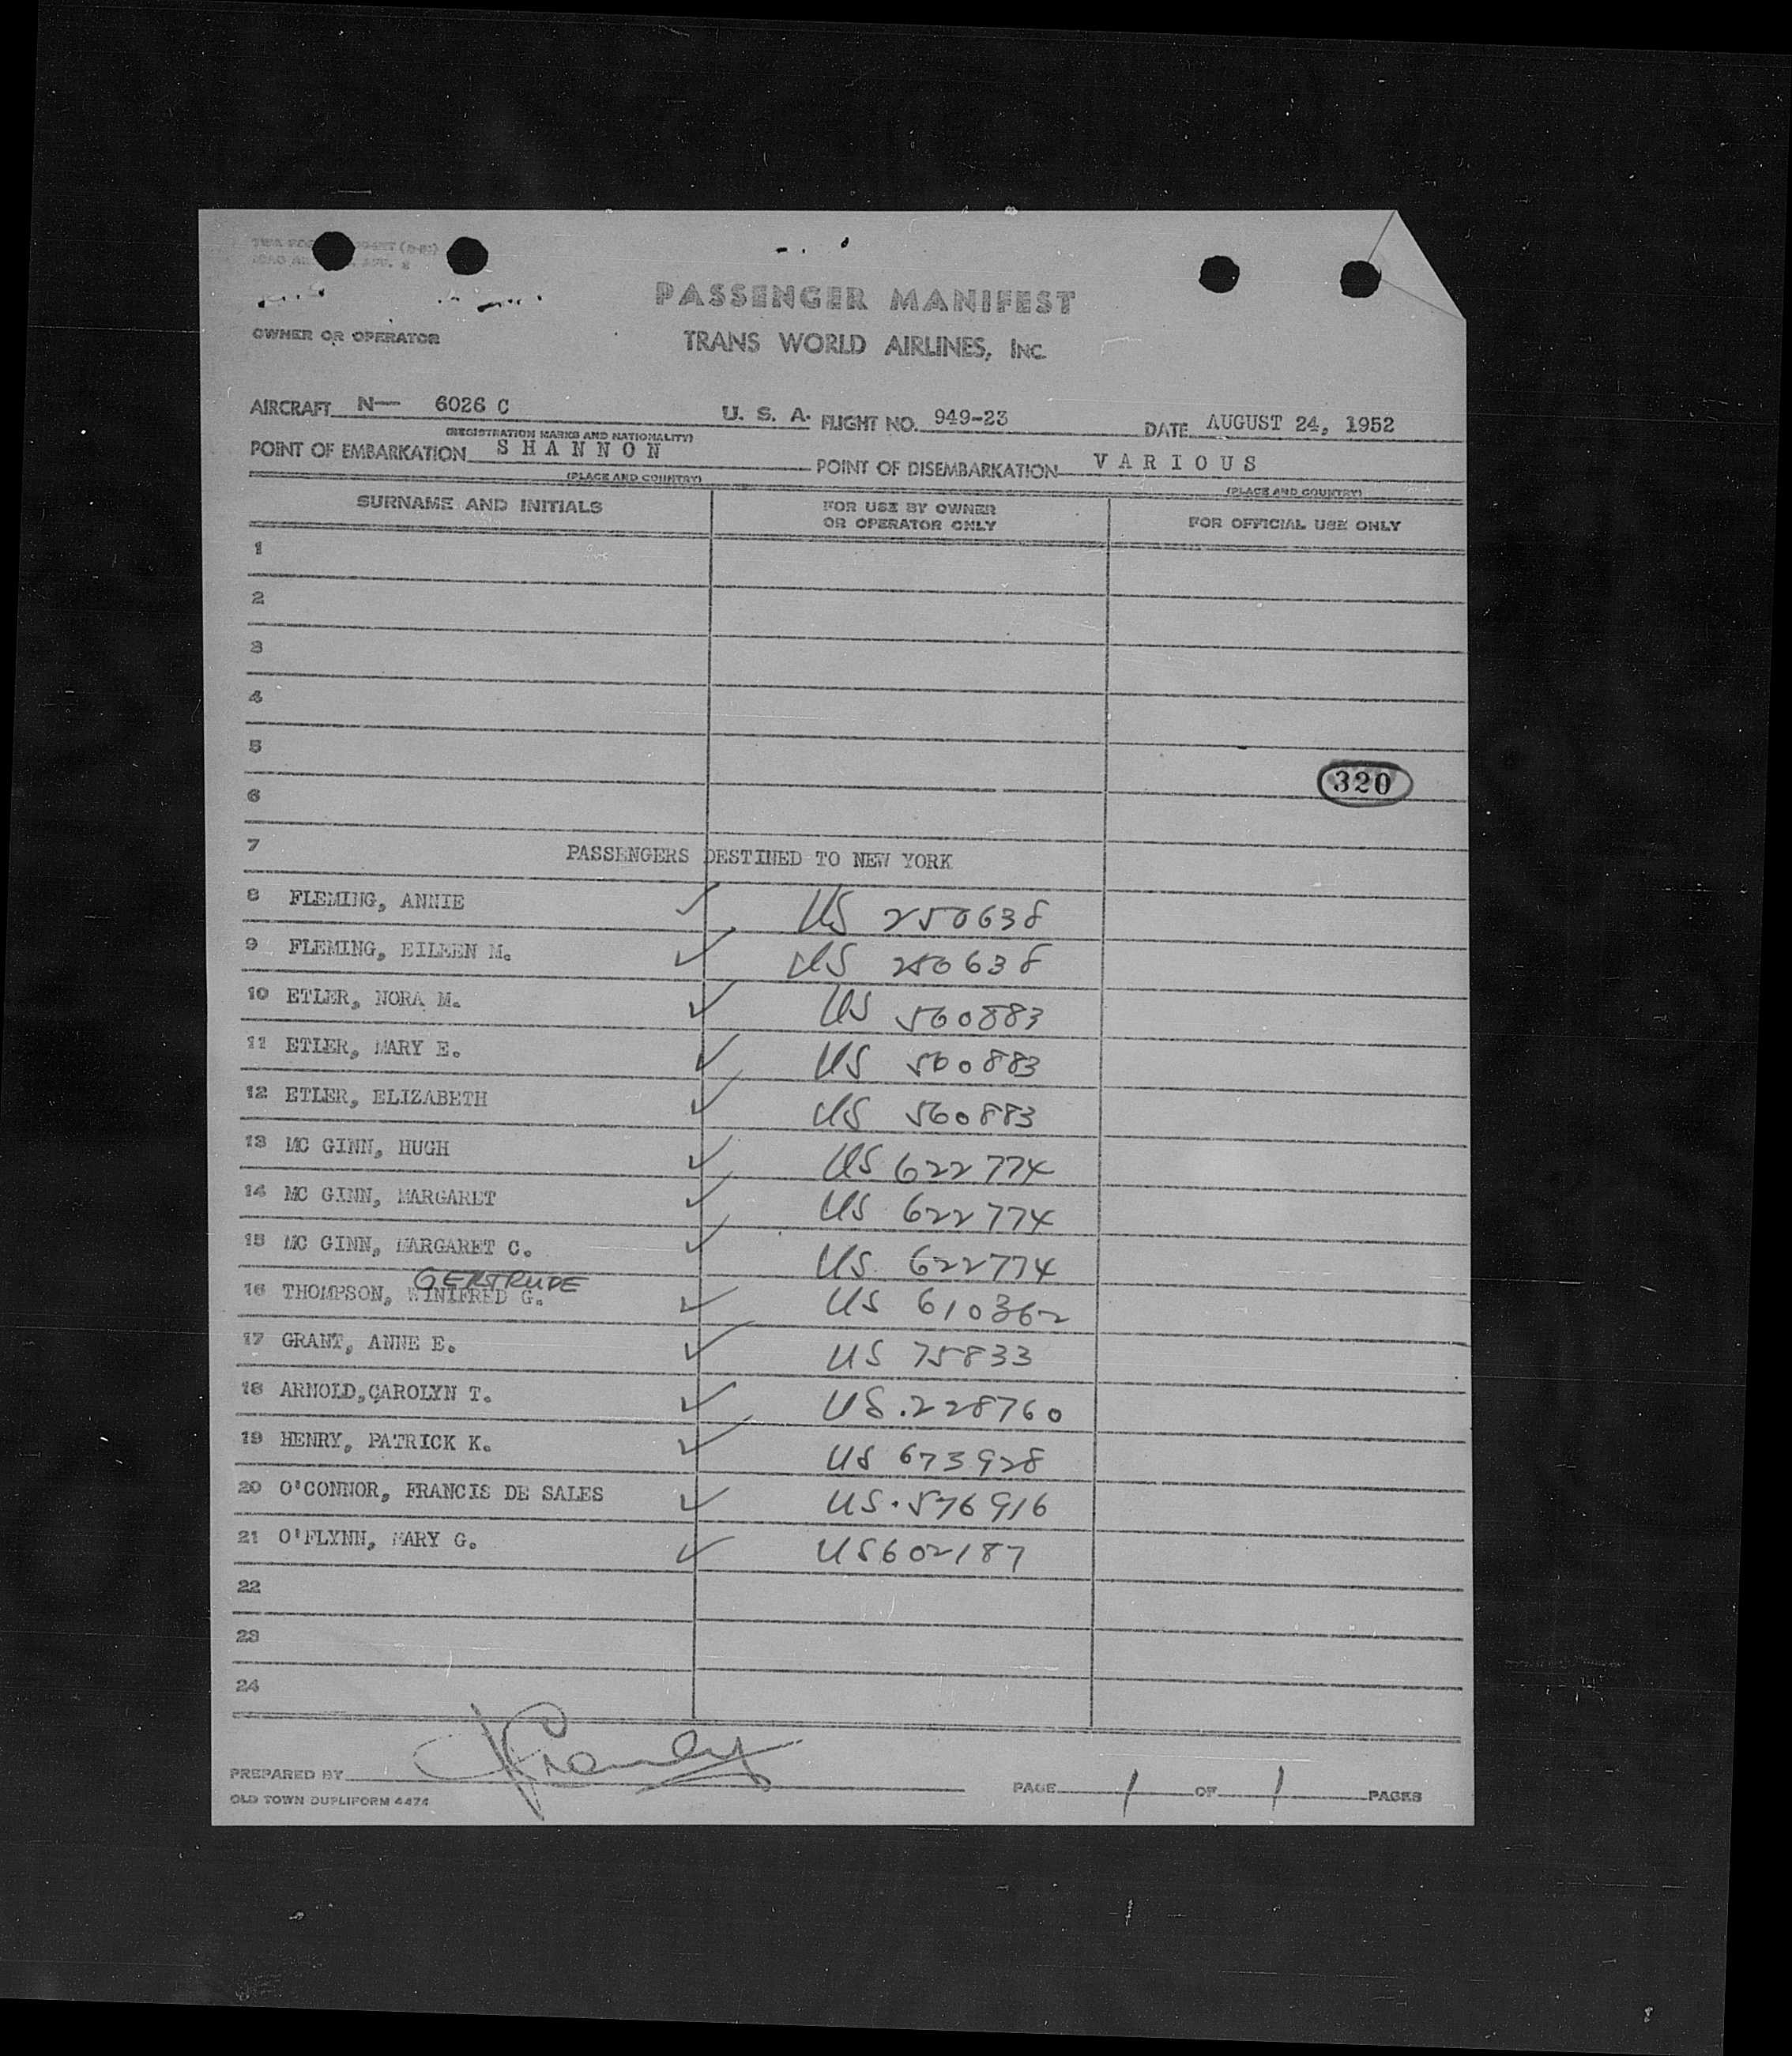 PASSENGER MANIFEST
OWNER OR OPERATOR
TRANS WORLD AIRLINES, INC.
AIRCRAFT N— 6026 C U. S. A. FLIGHT NO. 949-23 DATE AUGUST 24, 1952
(REGISTRATION MARKS AND NATIONALITY)
POINT OF EMBARKATION S H A N N O N POINT OF DISEMBARKATION V A R I O U S
(PLACE AND COUNTRY) (PLACE AND COUNTRY)
SURNAME AND INITIALS FOR USE BY OWNER OR OPERATOR ONLY FOR OFFICIAL USE ONLY
1
2
3
4
5
320
6
7 PASSENGERS DESTINED TO NEW YORK
8 FLEMING, ANNIE ✓ US 250638
9 FLEMING, EILEEN M. ✓ US 250638
10 ETLER, NORA M. ✓ US 560883
11 ETLER, MARY E. ✓ US 560883
12 ETLER, ELIZABETH ✓ US 560883
13 MC GINN, HUGH ✓ US 622774
14 MC GINN, MARGARET ✓ US 622774
15 MC GINN, MARGARET C. ✓ US 622774
GERTRUDE
16 THOMPSON, WINIFRED G. ✓ US 610362
17 GRANT, ANNE E. ✓ US 75833
18 ARNOLD,CAROLYN T. ✓ US.228760
19 HENRY, PATRICK K. ✓ US 673928
20 O'CONNOR, FRANCIS DE SALES ✓ US.576916
21 O'FLYNN, MARY G. ✓ US602187
22
23
24
PREPARED BY PAGE 1 OF 1 PAGES
OLD TOWN DUPLIFORM 4474